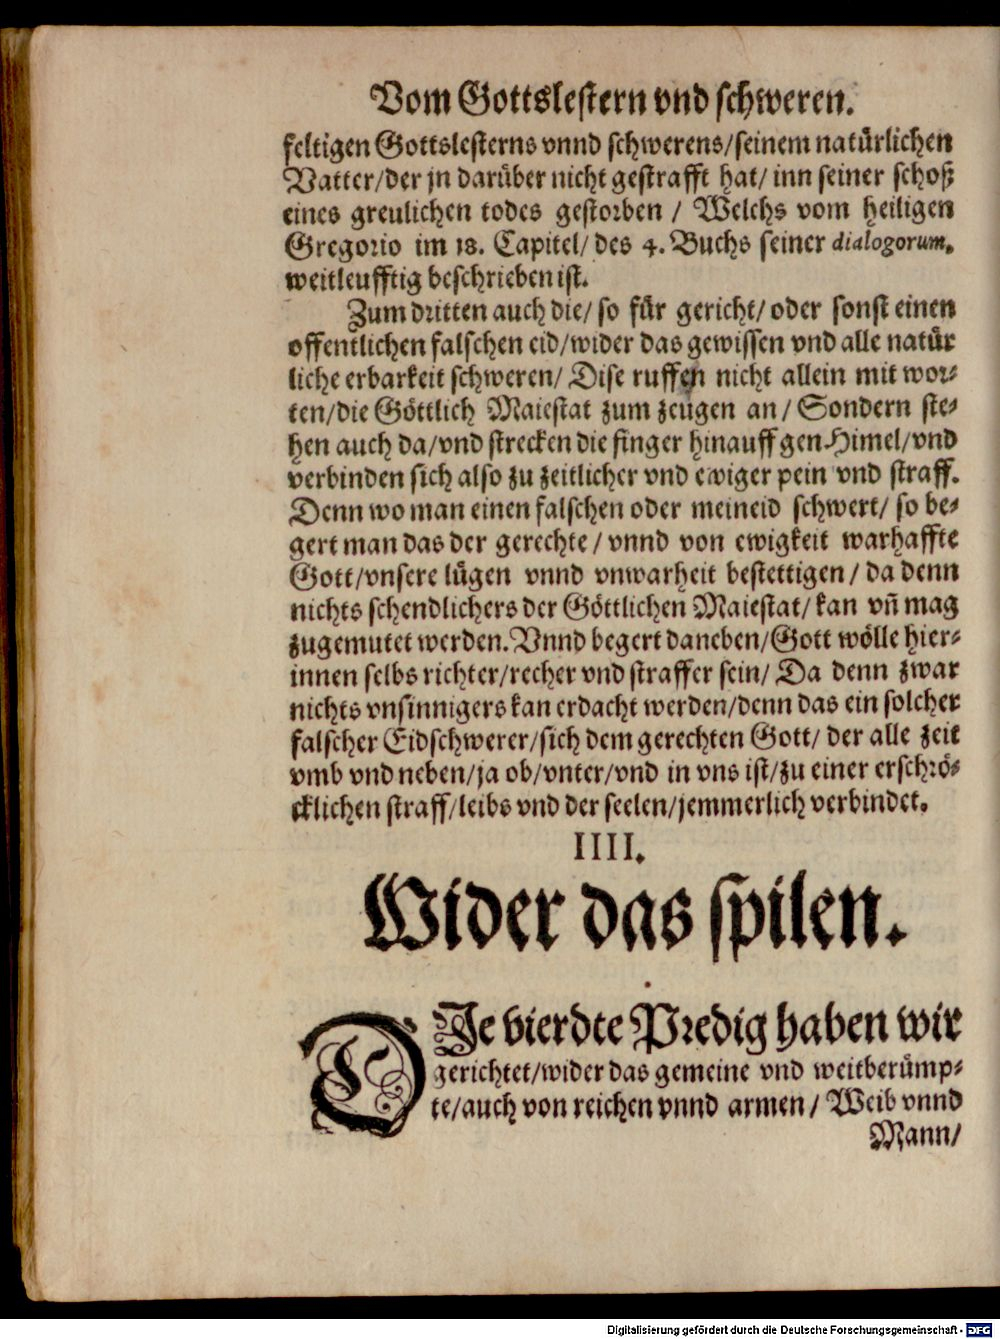 Vom Gottslestern vnd schweren.
feltigen Gottslesterns vnnd schwerens/seinem natürlichen
Vatter/der jn darüber nicht gestrafft hat/ inn seiner schoß
eines greulichen todes gestorben / Welchs vom heiligen
Gregorio im 18. Capitel/ des 4. Buchs seiner dialogorum.
weitleufftig beschrieben ist.
Zum dritten auch die/ so für gericht/ oder sonst einen
offentlichen falschen eid/wider das gewissen vnd alle natür
liche erbarkeit schweren/ Dise ruffen nicht allein mit wor-
ten/die Göttlich Maiestat zum zeugen an/ Sondern ste-
hen auch da/vnd strecken die finger hinauff gen Himel/vnd
verbinden sich also zu zeitlicher vnd ewiger pein vnd straff.
Denn wo man einen falschen oder meineid schwert/ so be-
gert man das der gerechte / vnnd von ewigkeit warhaffte
Gott/vnsere lügen vnnd vnwarheit bestettigen/ da denn
nichts schendlichers der Göttlichen Maiestat/ kan vñ mag
zugemutet werden. Vnnd begert daneben/Gott wölle hier-
innen selbs richter/recher vnd straffer sein/ Da denn zwar
nichts vnsinnigers kan erdacht werden/denn das ein solcher
falscher Eidschwerer/sich dem gerechten Gott/ der alle zeit
vmb vnd neben/ja ob/vnter/vnd in vns ist/zu einer erschrö-
cklichen straff/leibs vnd der seelen/jemmerlich verbindet.
IIII.
Wider das spilen.
DIe vierdte Predig haben wir
gerichtet/wider das gemeine vnd weitberümp-
te/auch von reichen vnnd armen/ Weib vnnd
Mann/
Digitalisierung gefördert durch die Deutsche Forschungsgemeinschaft - DFG